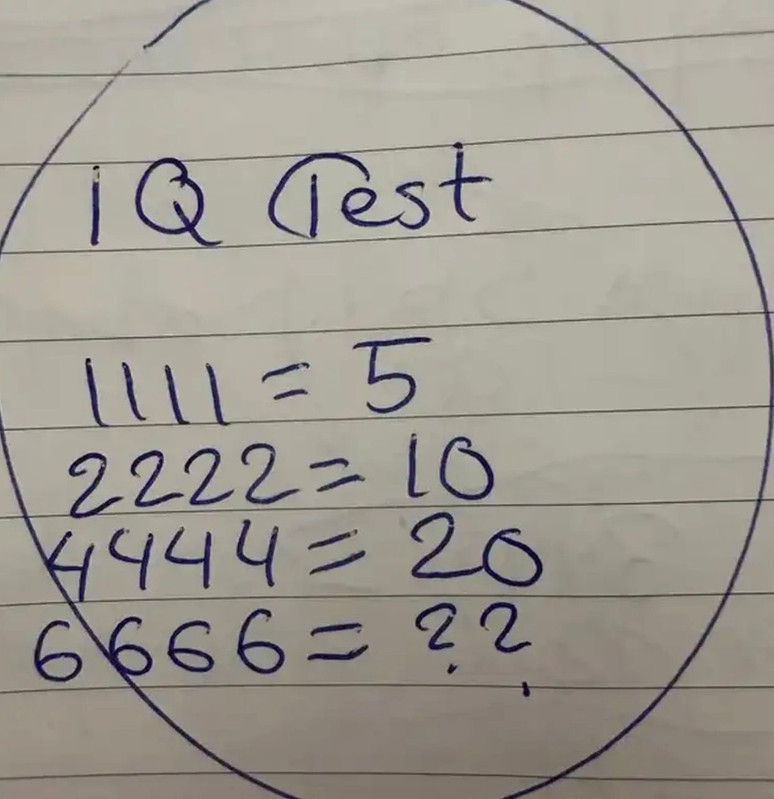 IQ Test
1111 = 5
2222 = 10
4444 = 20
6666 = ??